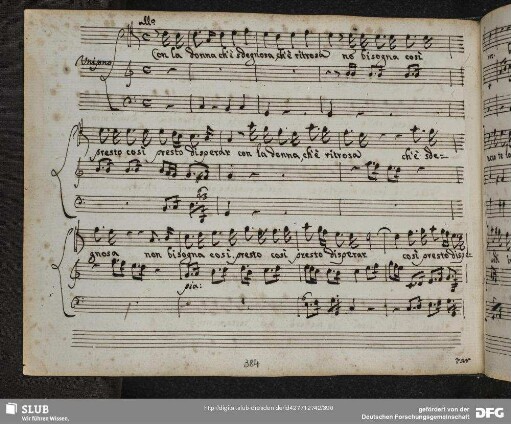 all°
Unisono
Con la donna ch'è sdegnosa, ch'è ritrosa no bisogna così
presto così presto disperar con la donna, ch'è ritrosa ch'è sde=
gnosa non bisogna così, presto così presto disperar così presto dispe
pia:
384
rar
SLUB
Wir führen Wissen.
gefördert von der
Deutschen Forschungsgemeinschaft
DFG